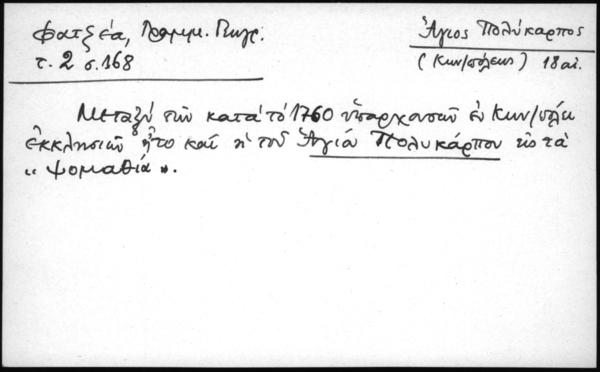 Φατζέα, Γραμμ. Γεωγρ.
τ. 2 σ. 168
Ἅγιος Πολύκαρπος
(Κων/πόλεως) 18 αἰ.
Μεταξύ τῶν κατά τό 1760 ὑπαρχουσῶν ἐν Κων/πόλει
ἐκκλησιῶν ἦτο καί ἡ τοῦ Ἁγίου Πολυκάρπου εἰς τά
«Ψομαθιά».